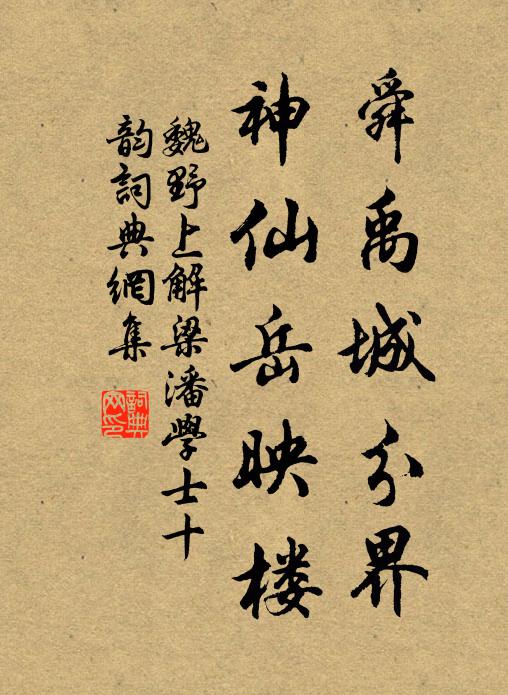 舜禹城分界
神仙岳映楼
魏野上解梁潘學士十
韵詞典網集
詞典網印